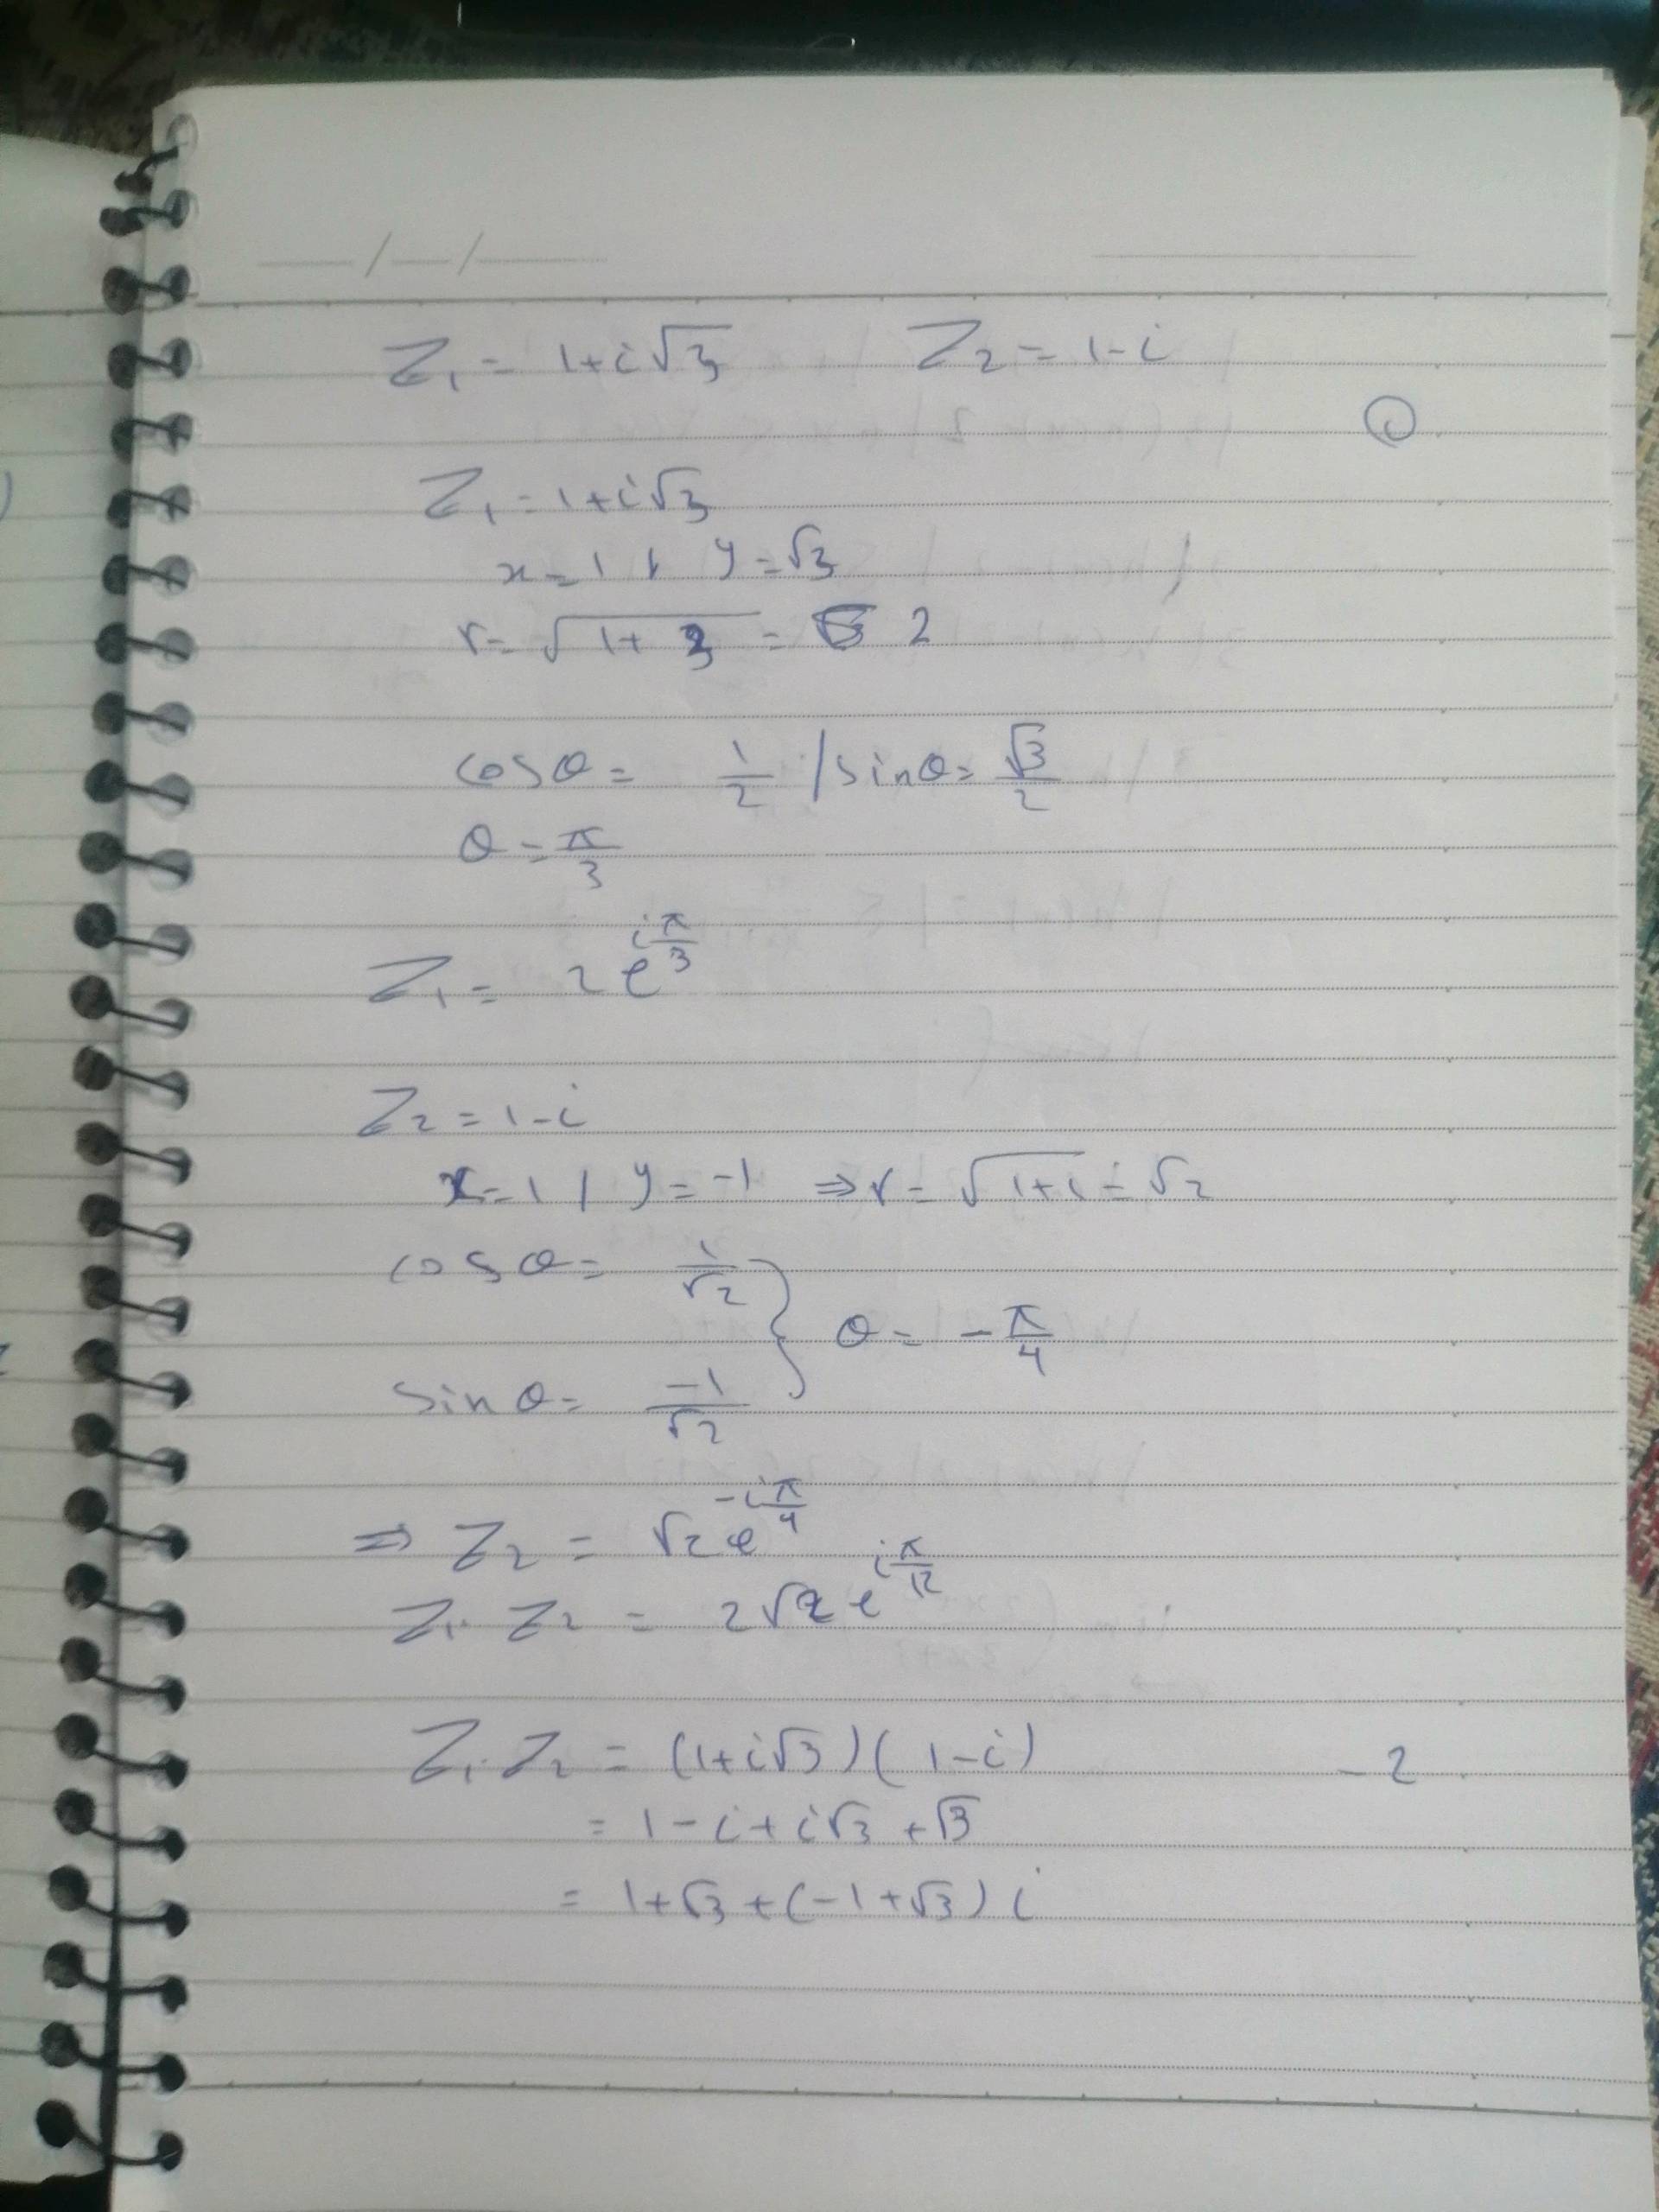 Z₁ = 1+i√3    Z₂ = 1-i
①
Z₁ = 1+i√3
x = 1 / y = √3
r = √(1+3) = 2
cosθ = 1/2 / sinθ = √3/2
θ = π/3
Z₁ = 2e^(iπ/3)
Z₂ = 1-i
x = 1 / y = -1 ⇒ r = √(1+1) = √2
cosθ = 1/√2
} θ = -π/4
sinθ = -1/√2
⇒ Z₂ = √2e^(-iπ/4)
Z₁.Z₂ = 2√2e^(iπ/12)
Z₁.Z₂ = (1+i√3)(1-i)    -2
= 1-i+i√3+√3
= 1+√3+(-1+√3)i